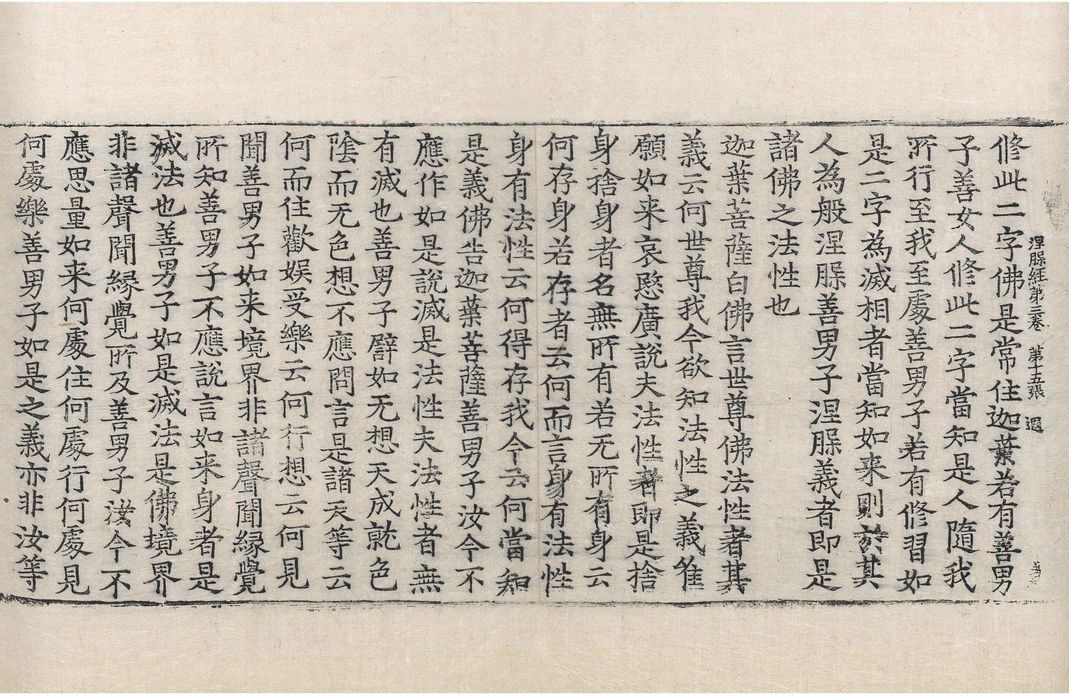 涅槃經第三卷 第十五張 遐
修此二字佛是常住迦葉若有善男
子善女人修此二字當知是人隨我
所行至我至處善男子若有修習如
是二字為滅相者當知如来則於其
人為般涅槃善男子涅槃義者即是
諸佛之法性也
迦葉菩薩白佛言世尊佛法性者其
義云何世尊我今欲知法性之義唯
願如来哀愍廣說夫法性者即是捨
身捨身者名無所有若无所有身云
何存身若存者云何而言身有法性
身有法性云何得存我今云何當知
是義佛告迦葉菩薩善男子汝今不
應作如是說滅是法性夫法性者無
有滅也善男子譬如无想天成就色
陰而无色想不應問言是諸天等云
何而住歡娱受樂云何行想云何見
聞善男子如来境界非諸聲聞緣覺
所知善男子不應說言如来身者是
滅法也善男子如是滅法是佛境界
非諸聲聞緣覺所及善男子汝今不
應思量如来何處住何處行何處見
何處樂善男子如是之義亦非汝等